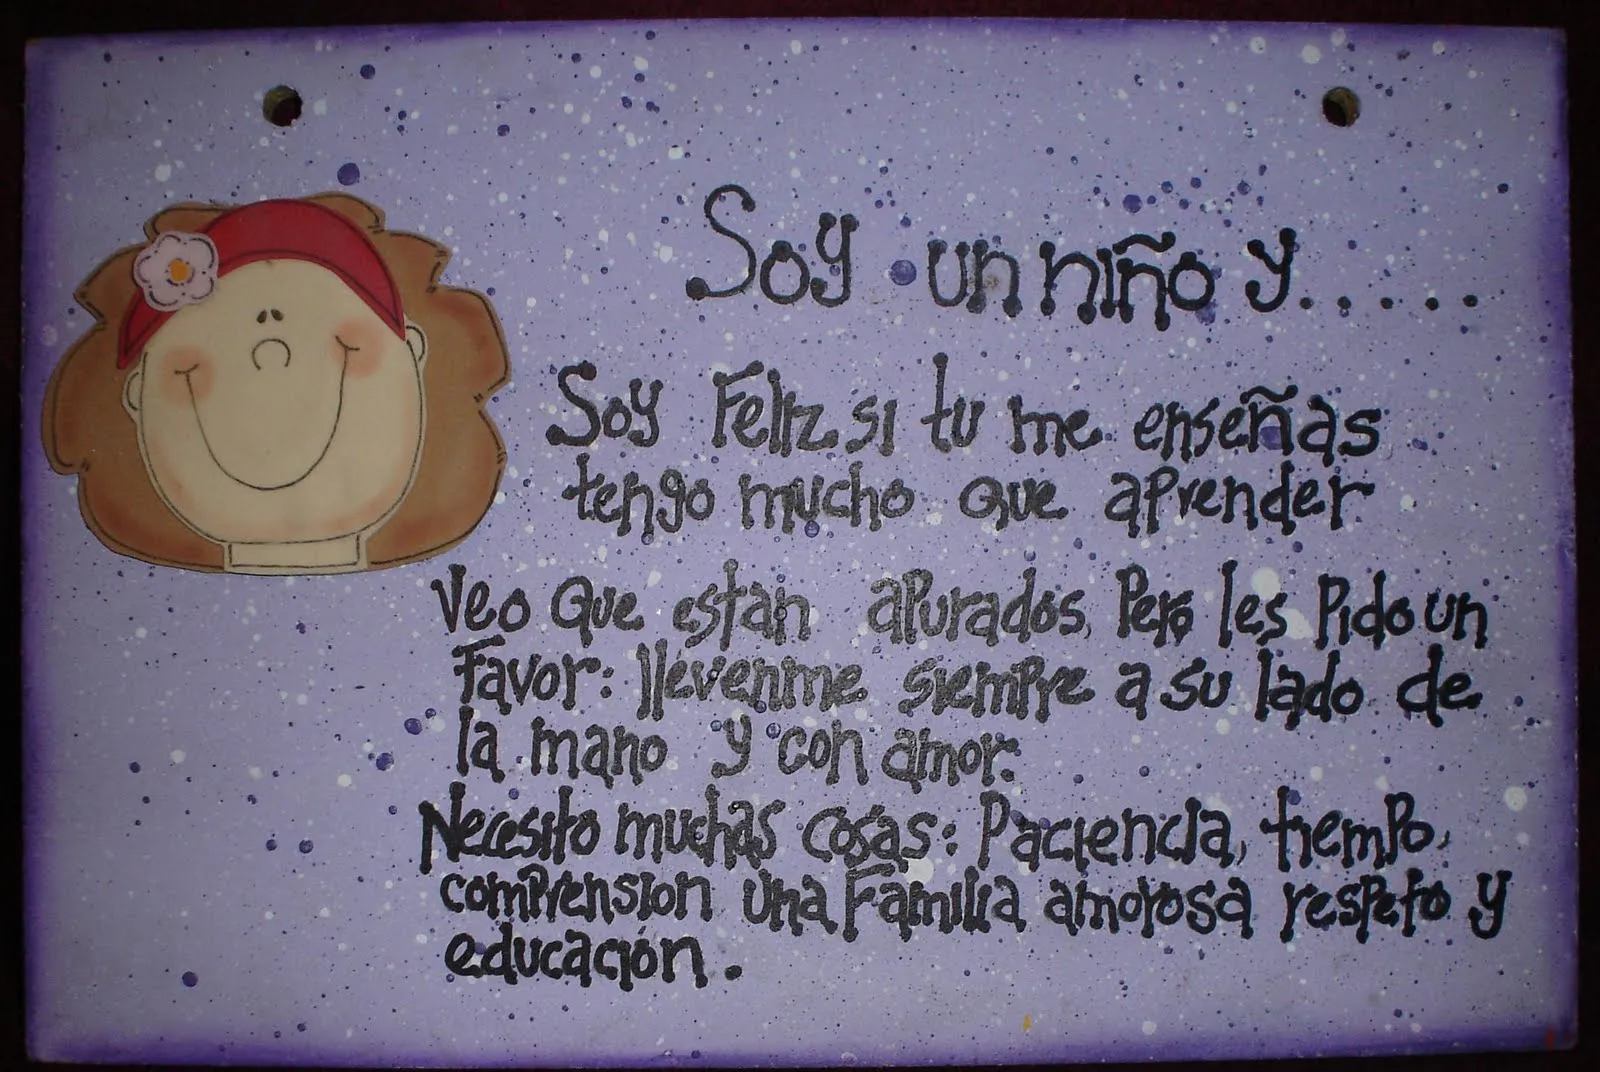 Soy un niño y.....
Soy Feliz si tu me enseñas
tengo mucho que aprender
Veo que estan apurados, Pero les Pido un
Favor: llévenme siempre a su lado de
la mano y con amor.
Necesito muchas cosas: Paciencia, tiempo,
comprension una Familia amorosa respeto y
educación.